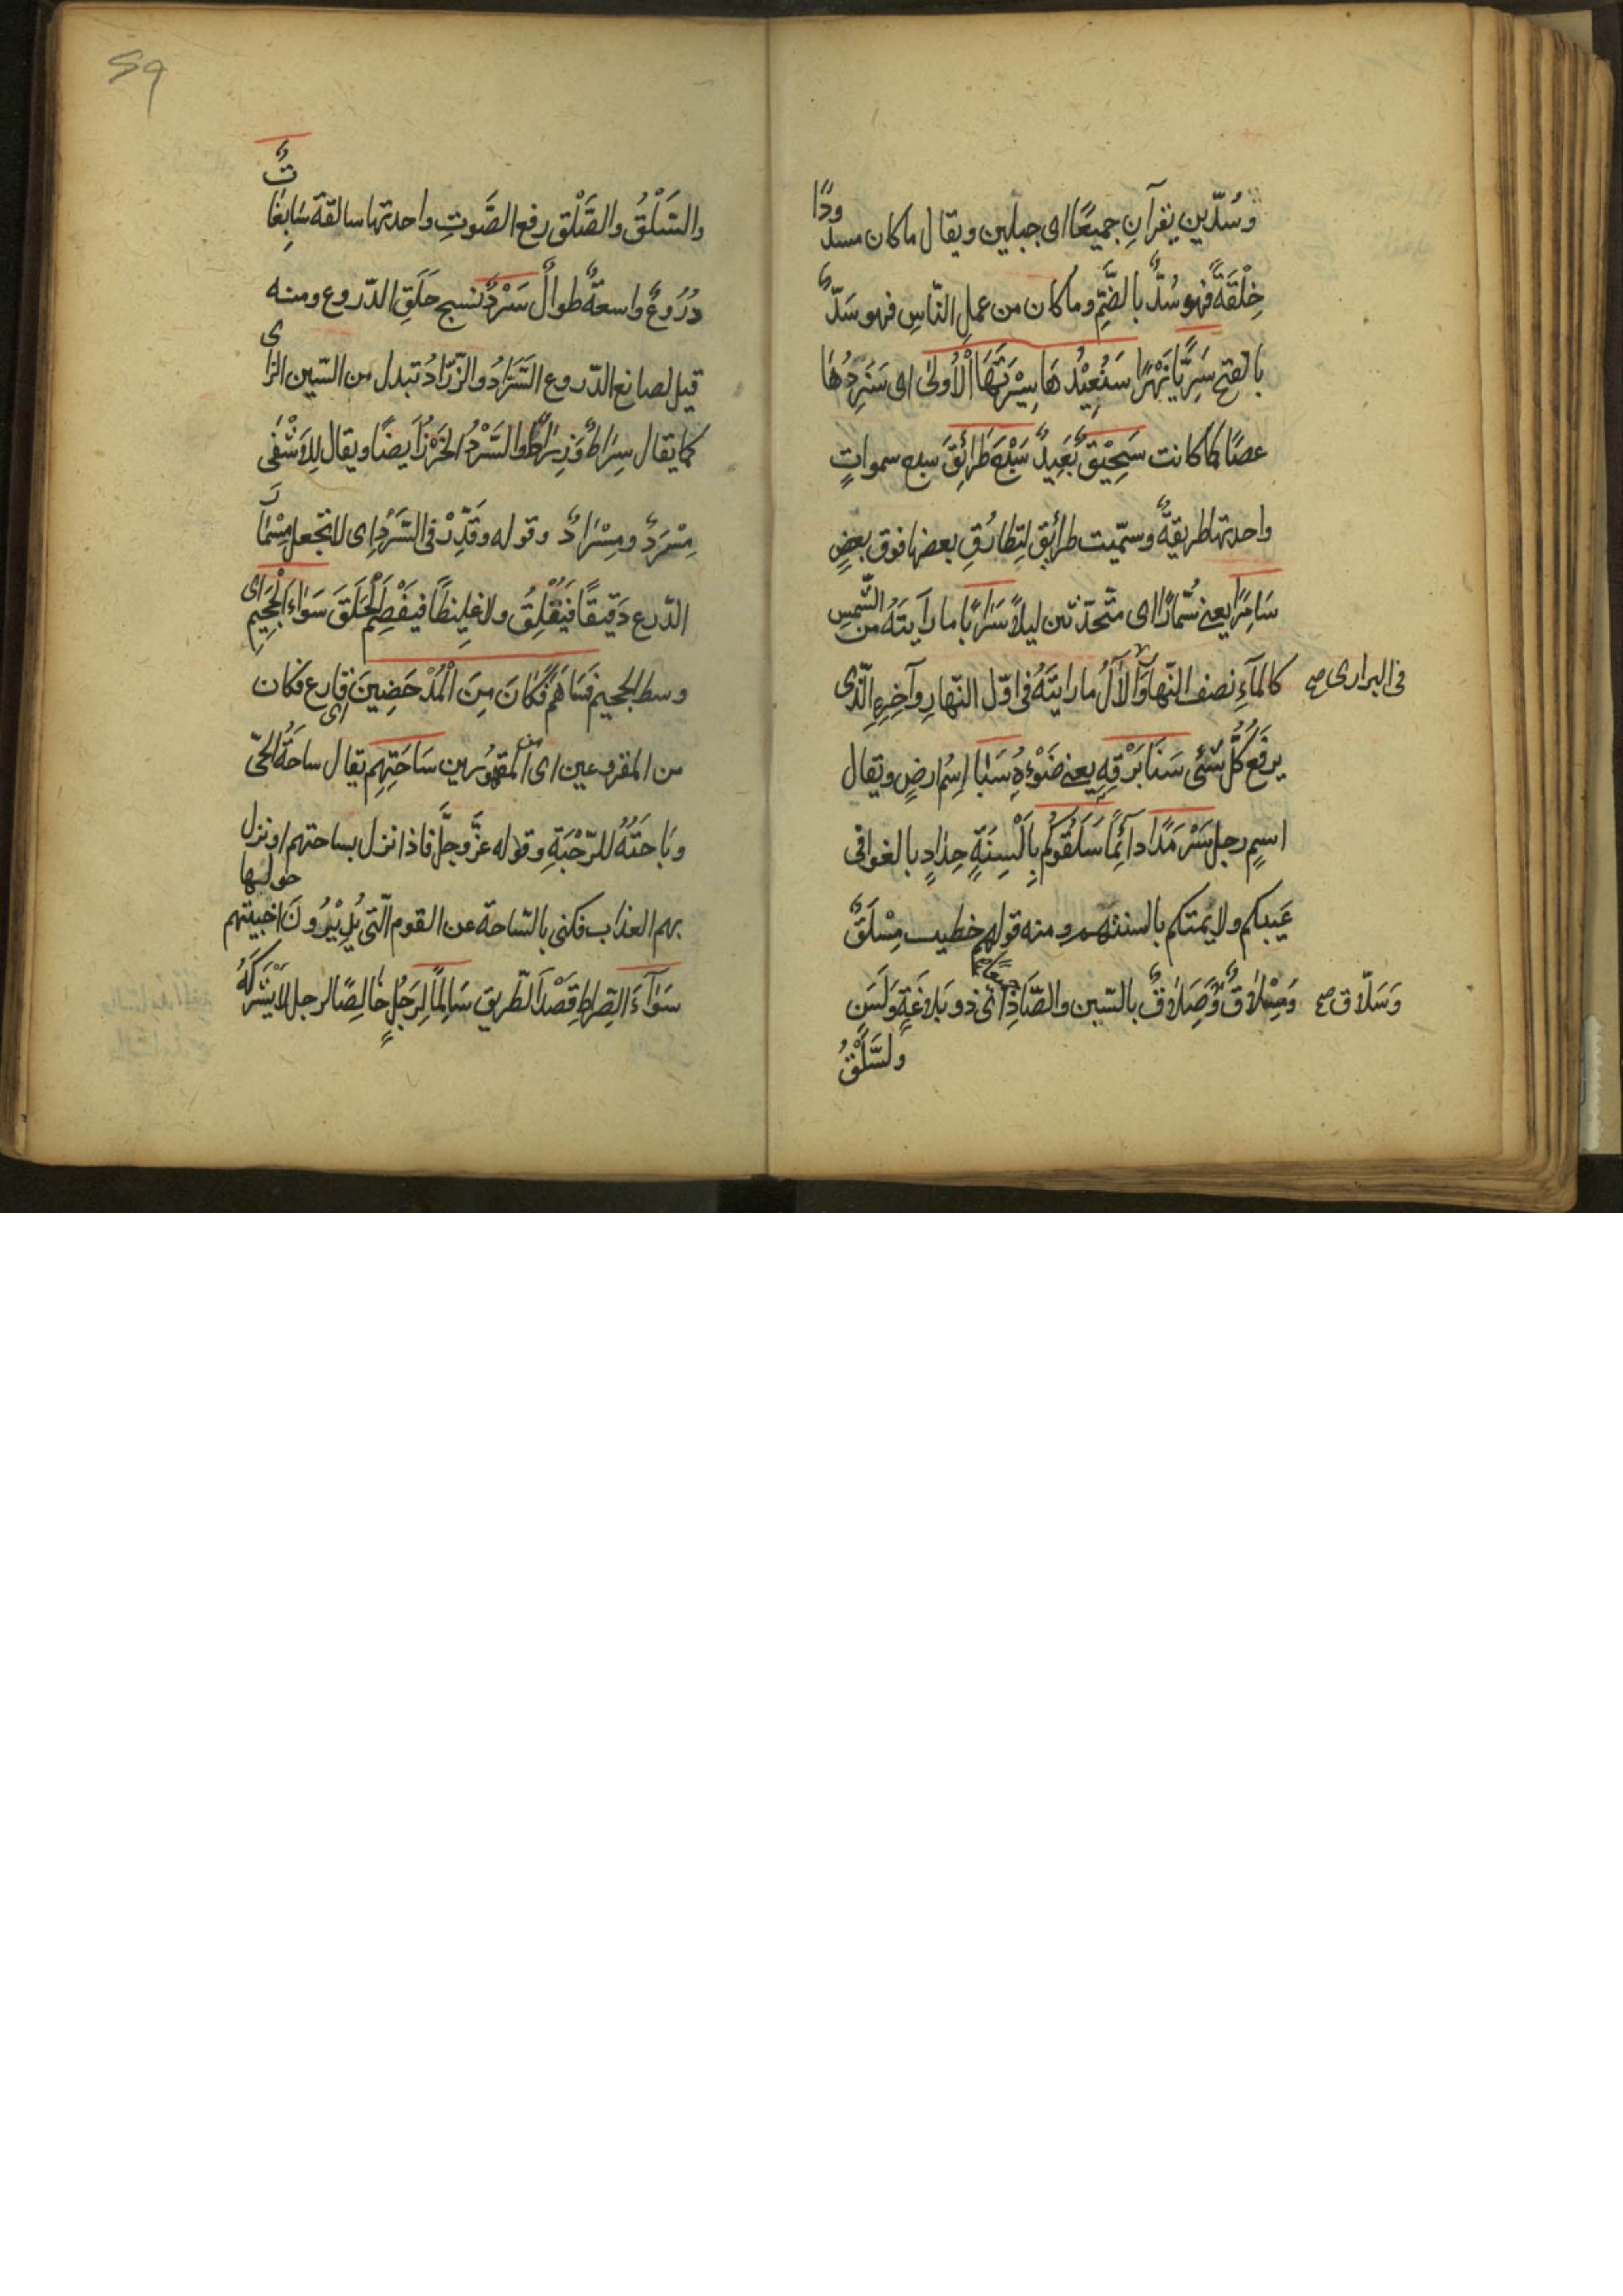 وَسُدّين يقرآنِ جميعًا اى جبلين ويقال ما كان مسدودًا
خِلْقَةً فهو سُدٌّ بالضَّمِّ وما كان من عملِ النّاسِ فهو سَدٌّ
بالفتح سَرِيًّا نَهْرًا سَنُعِيْدُهَا سِيْرَتَهَا الْأُولىٰ اى سَنَرِدُّهَا
عصًا كما كانت سَحِيْقٍ بَعِيدٍ سَبْعَ طَرَائِقَ سبع سمواتٍ
واحدتها طريقةٌ وسمّيت طرائق لِتطارُقِ بعضها فوق بعضٍ
سَامِرًا يعنى سُمّارًا اى متحدّثين ليلًا سَرَابًا ما رَأيتَهُ من الشّمسِ
كالمآءِ نصف النّهارِ وَالْآلُ ما رايتَهُ فى اوّل النّهارِ وآخِرِهِ الّذى
فى البرارى صح
يرفَعُ كُلَّ شَئى سَنَا بَرْقِهِ يعنى ضَوْءُهُ سَبَا اِسْمُ ارضٍ ويقال
اسمِ رجل سَرْمَدًا دآئِمًا سَلَقُوكُمْ بِاَلْسِنَةٍ حِدَادٍ بالغوا فى
عَيبكم ولايمتكم بالسنتهم ومنه قولهم خطيب مِسْلَقٌ
وَمِسْلَاقٌ وَصَلَاقٌ بالسّين والصّادِ جميعًا اى ذو بَلاغَةٍ وَلَسَنٍ
وَسَلّاق صح
ولسَّلْقُ
59
والسَلْقُ والصَّلْق رفع الصَّوتِ واحدتها سالقة سَابِغَاتٌ
دُرُوعٌ واسعةٌ طوالٌ سَرْدٌ نسج حَلَقِ الدّروع ومنه
قيل لصانع الدّروع السَّرَّادُ والزَّرّادُ تبدل من السّين الزّاى
كما يقال سِرَاطٌ وَزِرَاطٌ والسَّرْدُ الخَرْزُ اَيضًا ويقال لِلاِشْفَى
مِسْرَدٌ ومِسْرَادٌ وقوله وقَدِّرْ فى السَّرْدِ اى لا تجعل مِسْمارَ
الدّرع دَقيقًا فَيَقْلِقُ ولا غليظًا فيَفْصِمُ الْحَلَقَ سَوَاءِ الْجَحِيمِ اى
وسط الجحيم فَسَاهَمَ فَكَانَ مِنَ الْمُدْحَضِينَ اى قارع فكان
من المقروعين اى من المقهُورين سَاحَتِهِم يقال ساحةُ الحىّ
وبَاحَتُهُ للرّحْبَةِ وقوله عزّ وجلَّ فاذا نزل بساحتهم او نزل
بهم العذاب فكنى بالسّاحة عن القوم الّتى يُدِيْرُونَ اخبيتهم حوليها
سَوَآءَ الصِّراطِ قَصْدَ الطّريق سَالِمًا لِرَجُلٍ خَالِصًا لرجل لا يَشْرَكُهُ